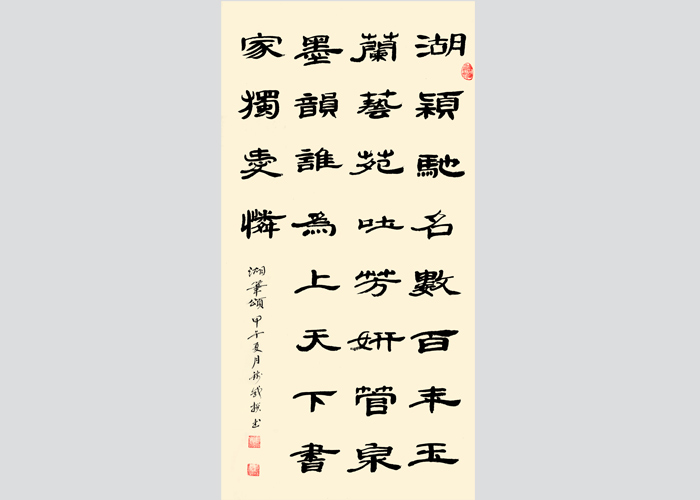 湖穎馳名數百年玉
蘭藝苑吐芳妍管泉
墨韻誰為上天下書
家獨愛憐
湖筆頌 甲午夏月 撰书